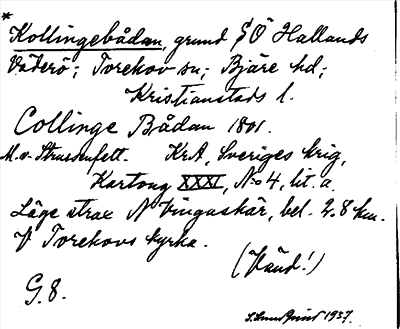 *
Kollingebådan, grund SÖ Hallands
Väderö; Torekov sn; Bjäre hd;
Kristianstads l.
Collinge Bådan 1801.
M. v. Strussenfelt. KrA, Sveriges krig,
Kartong XXXI, No 4, lit. a.
Läge strax N Vingaskär, bel. 2.8 km.
V Torekovs kyrka.
(Vänd!)
G. 8.
1937.